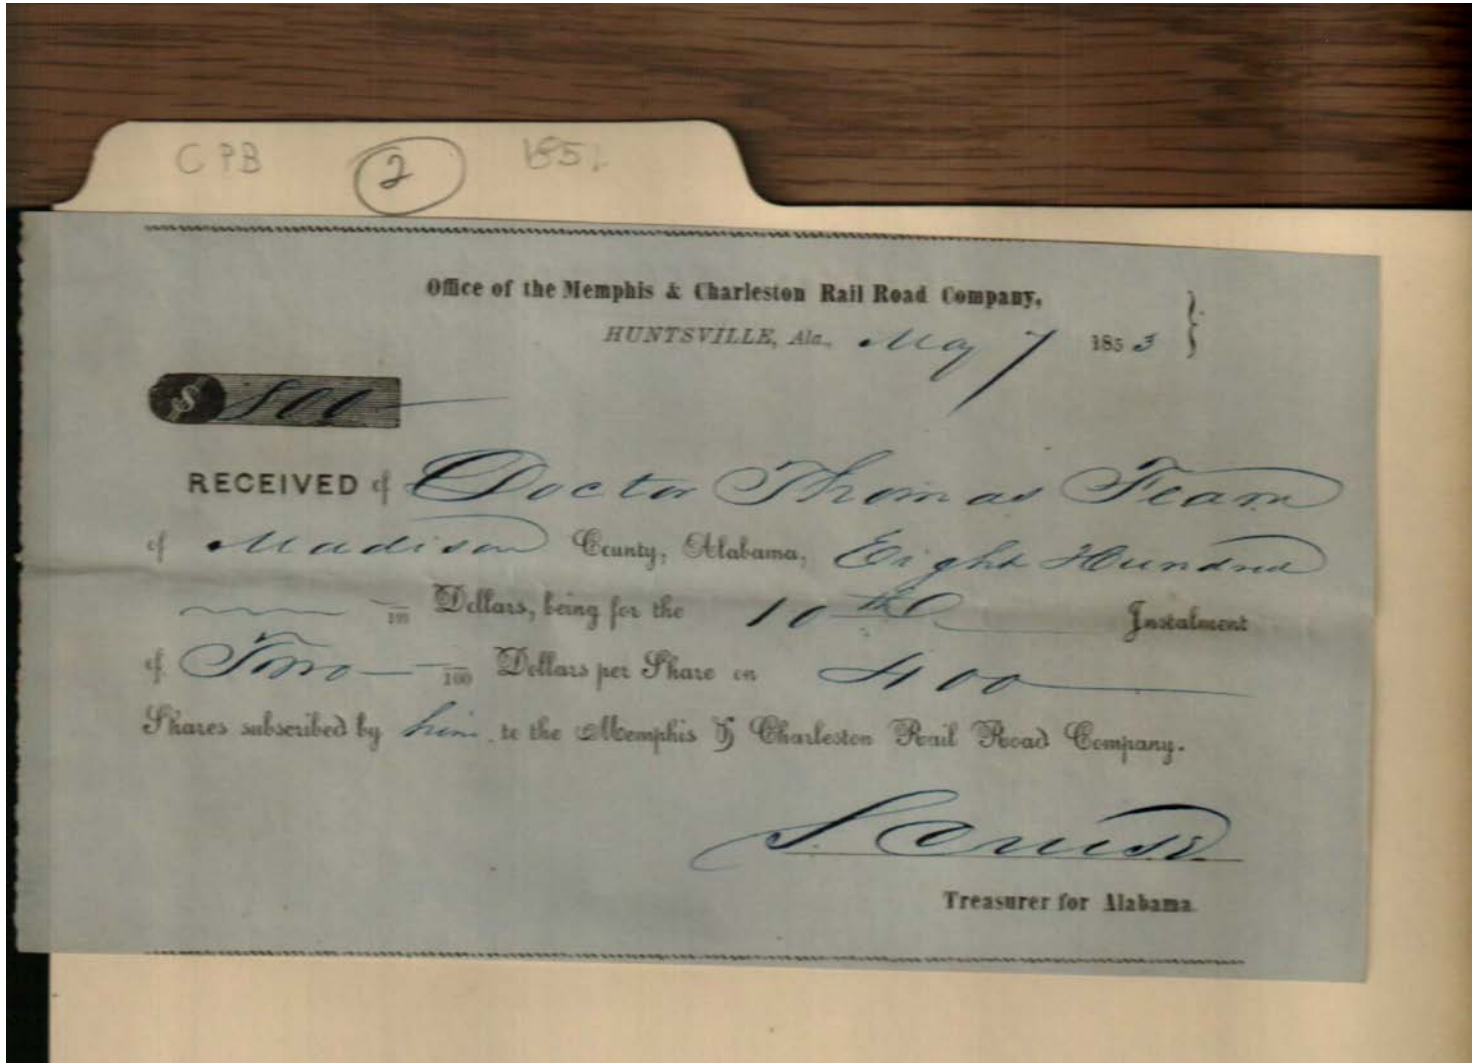 CPB 2 185
Office of the Memphis & Charleston Rail Road Company,
HUNTSVILLE, Ala., May 7 1853
$ 800
RECEIVED of Doctor Thomas Fearn
of Madison County, Alabama, Eight Hundred
/100 Dollars, being for the 10th Instalment
of Two /100 Dollars per Share on 400
Shares subscribed by him to the Memphis & Charleston Rail Road Company.
S. Cruse
Treasurer for Alabama.